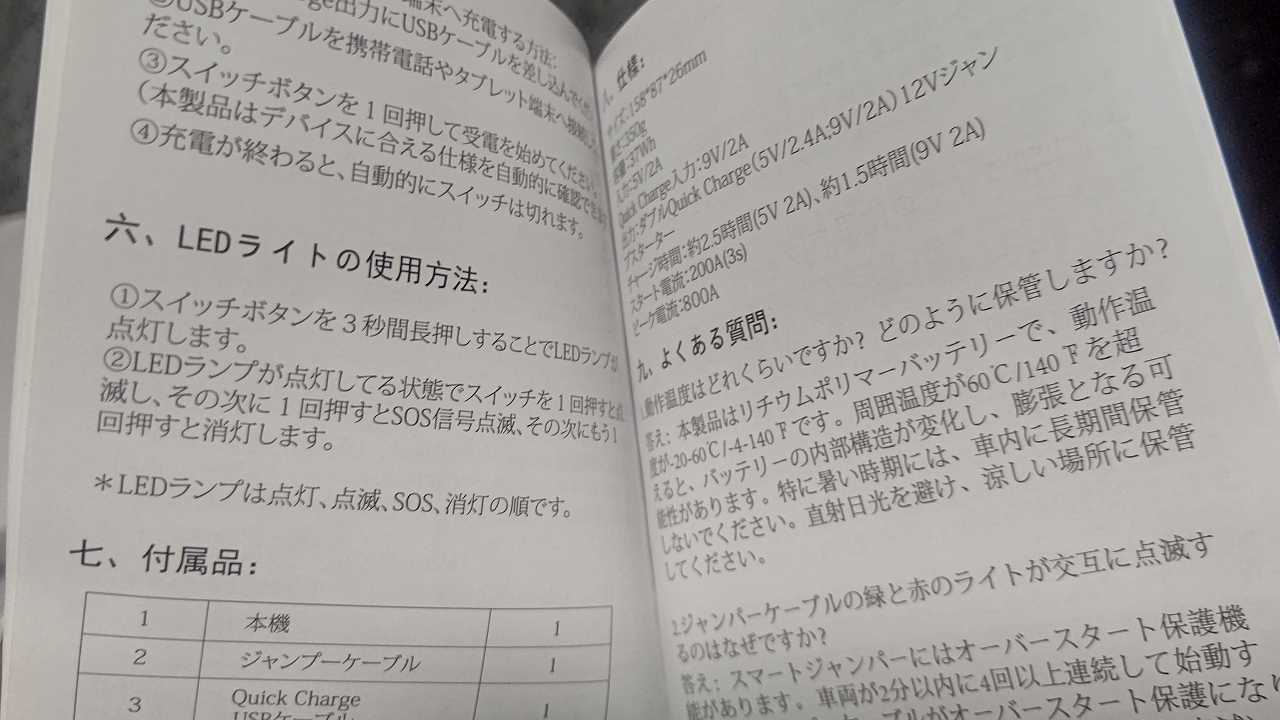 端末へ充電する方法:
Charge出力にUSBケーブルを差し込んで
USBケーブルを携帯電話やタブレット端末へ接続
ださい。
③スイッチボタンを1回押して受電を始めてください。
(本製品はデバイスに合える仕様を自動的に確認で
④充電が終わると、自動的にスイッチは切れます。
六、LEDライトの使用方法:
①スイッチボタンを3秒間長押しすることでLEDランプが
点灯します。
②LEDランプが点灯してる状態でスイッチを1回押すと点
滅し、その次に1回押すとSOS信号点滅、その次にもう1
回押すと消灯します。
*LEDランプは点灯、点滅、SOS、消灯の順です。
七、付属品:
1 本機 1
2 ジャンプーケーブル 1
3 Quick Charge
USBケーブル 1
八、仕様:
サイズ:158*87*26mm
重さ:350g
容量:37Wh
入力:5V/2A
Quick Charge入力:9V/2A
出力:ダブルQuick Charge(5V/2.4A;9V/2A)12Vジャン
プスターター
チャージ時間:約2.5時間(5V 2A)、約1.5時間(9V 2A)
スタート電流:200A(3s)
ピーク電流:800A
九、よくある質問:
1.動作温度はどれくらいですか? どのように保管しますか?
答え: 本製品はリチウムポリマーバッテリーで、動作温
度が-20-60℃/-4-140℉です。周囲温度が60℃/140℉を超
えると、バッテリーの内部構造が変化し、膨張となる可
能性があります。特に暑い時期には、車内に長期間保管
しないでください。直射日光を避け、涼しい場所に保管
してください。
2.ジャンパーケーブルの緑と赤のライトが交互に点滅す
るのはなぜですか?
答え: スマートジャンパーにはオーバースタート保護機
能があります。車両が2分以内に4回以上連続して始動す
ーブルがオーバースタート保護になり